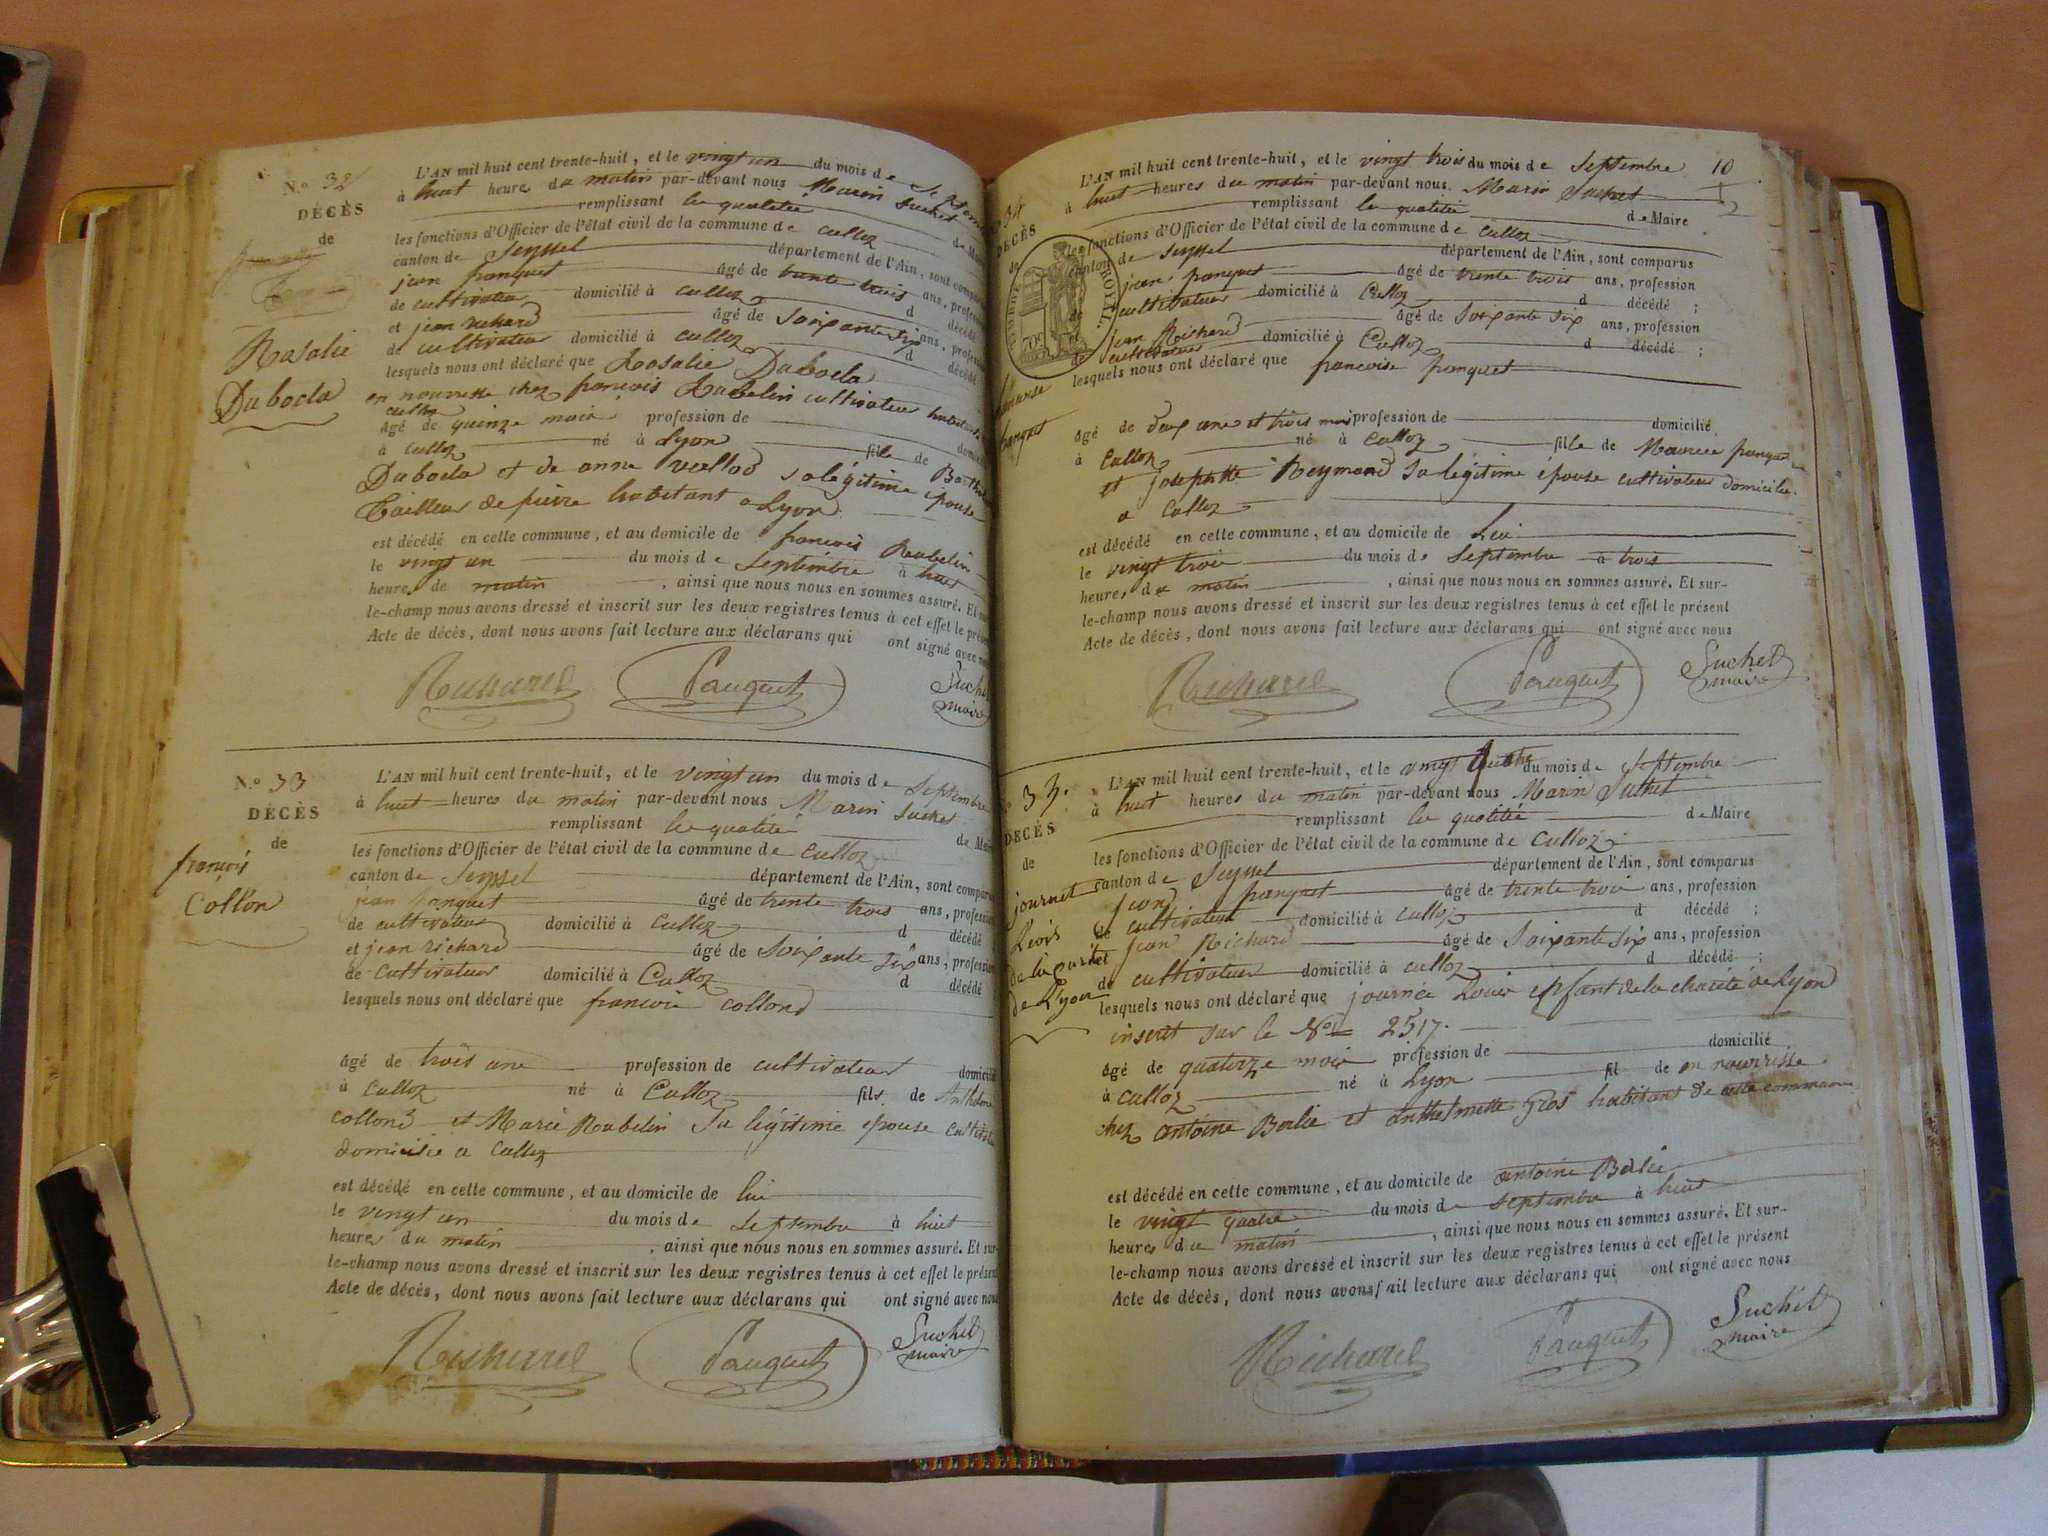 N.o 32
DÉCÈS
de
Rosalie
Duboclo
L'AN mil huit cent trente-huit, et le vingt un du mois de Septem
à huit heures du matin par-devant nous Marin Suchet
remplissant les qualitée de Mai
les fonctions d'Officier de l'état civil de la commune de Culloz
canton de Seyssel département de l'Ain, sont compar
jean panquet âgé de trente trois ans, profess
de cultivateur domicilié à Culloz d décédé
et jean richard âgé de Soixante Six ans, profess
de cultivateur domicilié à Culloz d décédé
lesquels nous ont déclaré que Rosalie Duboclo
en nourrisse chez francois Rabelin cultivateur habitant
Culloz
âgé de quinze mois profession de domici
à Culloz né à Lyon fille de Barth
Duboclo et de anne sa légitime épouse
Tailleur de pierre habitant a Lyon
est décédé en cette commune, et au domicile de francois Rabelin
le vingt un du mois de Septembre à huit
heures de matin, ainsi que nous nous en sommes assuré. Et sur
le-champ nous avons dressé et inscrit sur les deux registres tenus à cet effet le prés
Acte de décès, dont nous avons fait lecture aux déclarans qui ont signé avec nou
Richard Pauquet Suchet
maire
N.o 33
DÉCÈS
de
francois
Collon
L'AN mil huit cent trente-huit, et le vingt un du mois de Septembre
à huit heures du matin par-devant nous Marin Suchet
remplissant les qualité de Mai
les fonctions d'Officier de l'état civil de la commune de Culloz
canton de Seyssel département de l'Ain, sont comparu
jean panquet âgé de trente trois ans, profession
de cultivateur domicilié à Culloz d décédé
et jean richard âgé de Soixante Six ans, profession
de cultivateur domicilié à Culloz d décédé
lesquels nous ont déclaré que francois collond
âgé de trois ans profession de cultivateur domicilié
à Culloz né à Culloz fils de Anthelme
collond et Marie Rabelin Sa légitime épouse
domicilié a Culloz
est décédé en cette commune, et au domicile de lui
le vingt un du mois de Septembre à huit
heures du matin, ainsi que nous nous en sommes assuré. Et sur-
le-champ nous avons dressé et inscrit sur les deux registres tenus à cet effet le présen
Acte de décès, dont nous avons fait lecture aux déclarans qui ont signé avec nous
Richard Pauquet Suchet
maire
10
34
DÉCÈS
de
TIMBRE ROYAL
70c
panquet
L'AN mil huit cent trente-huit, et le vingt trois du mois de Septembre
à huit heures du matin par-devant nous Marin Suchet
remplissant les qualitée de Maire
les fonctions d'Officier de l'état civil de la commune de Culloz
canton de Seyssel département de l'Ain, sont comparus
jean panquet âgé de trente trois ans, profession
de cultivateur domicilié à Culloz d décédé ;
et jean Richard âgé de Soixante Six ans, profession
de cultivateur domicilié à Culloz d décédé ;
lesquels nous ont déclaré que francoise panquet
âgé de deux ans et trois mois profession de domicilié
à Culloz né à Culloz fille de Maurice panquet
et josephtte Reymond Sa légitime épouse cultivateur domicilie
a Culloz
est décédé en cette commune, et au domicile de Lui
le vingt trois du mois de Septembre à trois
heures du matin, ainsi que nous nous en sommes assuré. Et sur-
le-champ nous avons dressé et inscrit sur les deux registres tenus à cet effet le présent
Acte de décès, dont nous avons fait lecture aux déclarans qui ont signé avec nous
Richard Pauquet Suchet
maire
35.
DÉCÈS
de
journet
Louis
de la
de Lyon
L'AN mil huit cent trente-huit, et le vingt quatre du mois de Septembre
à huit heures du matin par-devant nous Marin Suchet
remplissant les qualitée de Maire
les fonctions d'Officier de l'état civil de la commune de Culloz
canton de Seyssel département de l'Ain, sont comparus
jean panquet âgé de trente trois ans, profession
de cultivateur domicilié à Culloz d décédé ;
et jean Richard âgé de Soixante Six ans, profession
de cultivateur domicilié à Culloz d décédé ;
lesquels nous ont déclaré que journée Louis enfant de la charité de Lyon
inscrit sur le No 2517.
âgé de quatorze mois profession de domicilié
à Culloz né à Lyon fil de en nourrisse
chez antoine Berlie et anthelmette Gros habitant de cette commune
est décédé en cette commune, et au domicile de antoine Berlie
le vingt quatre du mois de Septembre à huit
heures du matin, ainsi que nous nous en sommes assuré. Et sur-
le-champ nous avons dressé et inscrit sur les deux registres tenus à cet effet le présent
Acte de décès, dont nous avons fait lecture aux déclarans qui ont signé avec nous
Richard Pauquet Suchet
maire